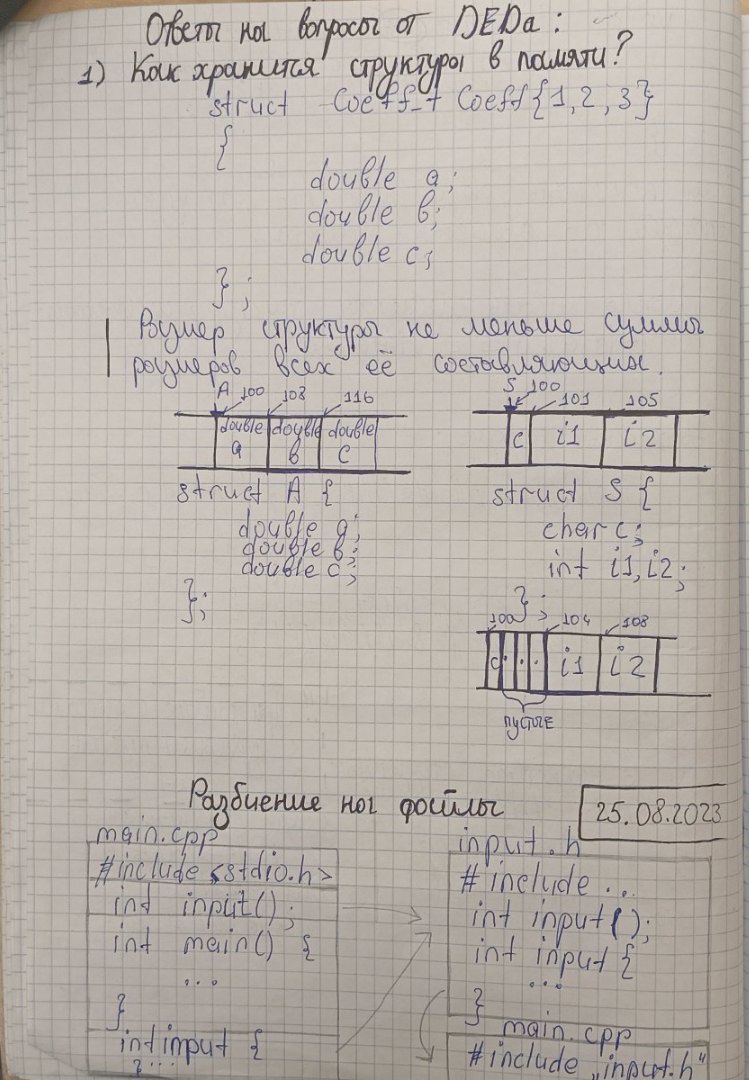 Ответы на вопросы от DEDa:
1) Как хранится структуры в памяти?
struct Coeff_t Coeff{1,2,3}
{
double a;
double b;
double c;
};
Размер структуры не меньше суммы
размеров всех её составляющих.
A 100 108 116
double a double b double c
struct A {
double a;
double b;
double c;
};
S 100 101 105
c i1 i2
struct S {
char c;
int i1,i2;
};
100 104 108
c . . . i1 i2
пустые
Разбиение на файлы
25.08.2023
main.cpp
#include <stdio.h>
int input();
int main() {
...
}
int input {
}...
input.h
#include ...
int input();
int input {
...
}
main.cpp
#include „input.h"